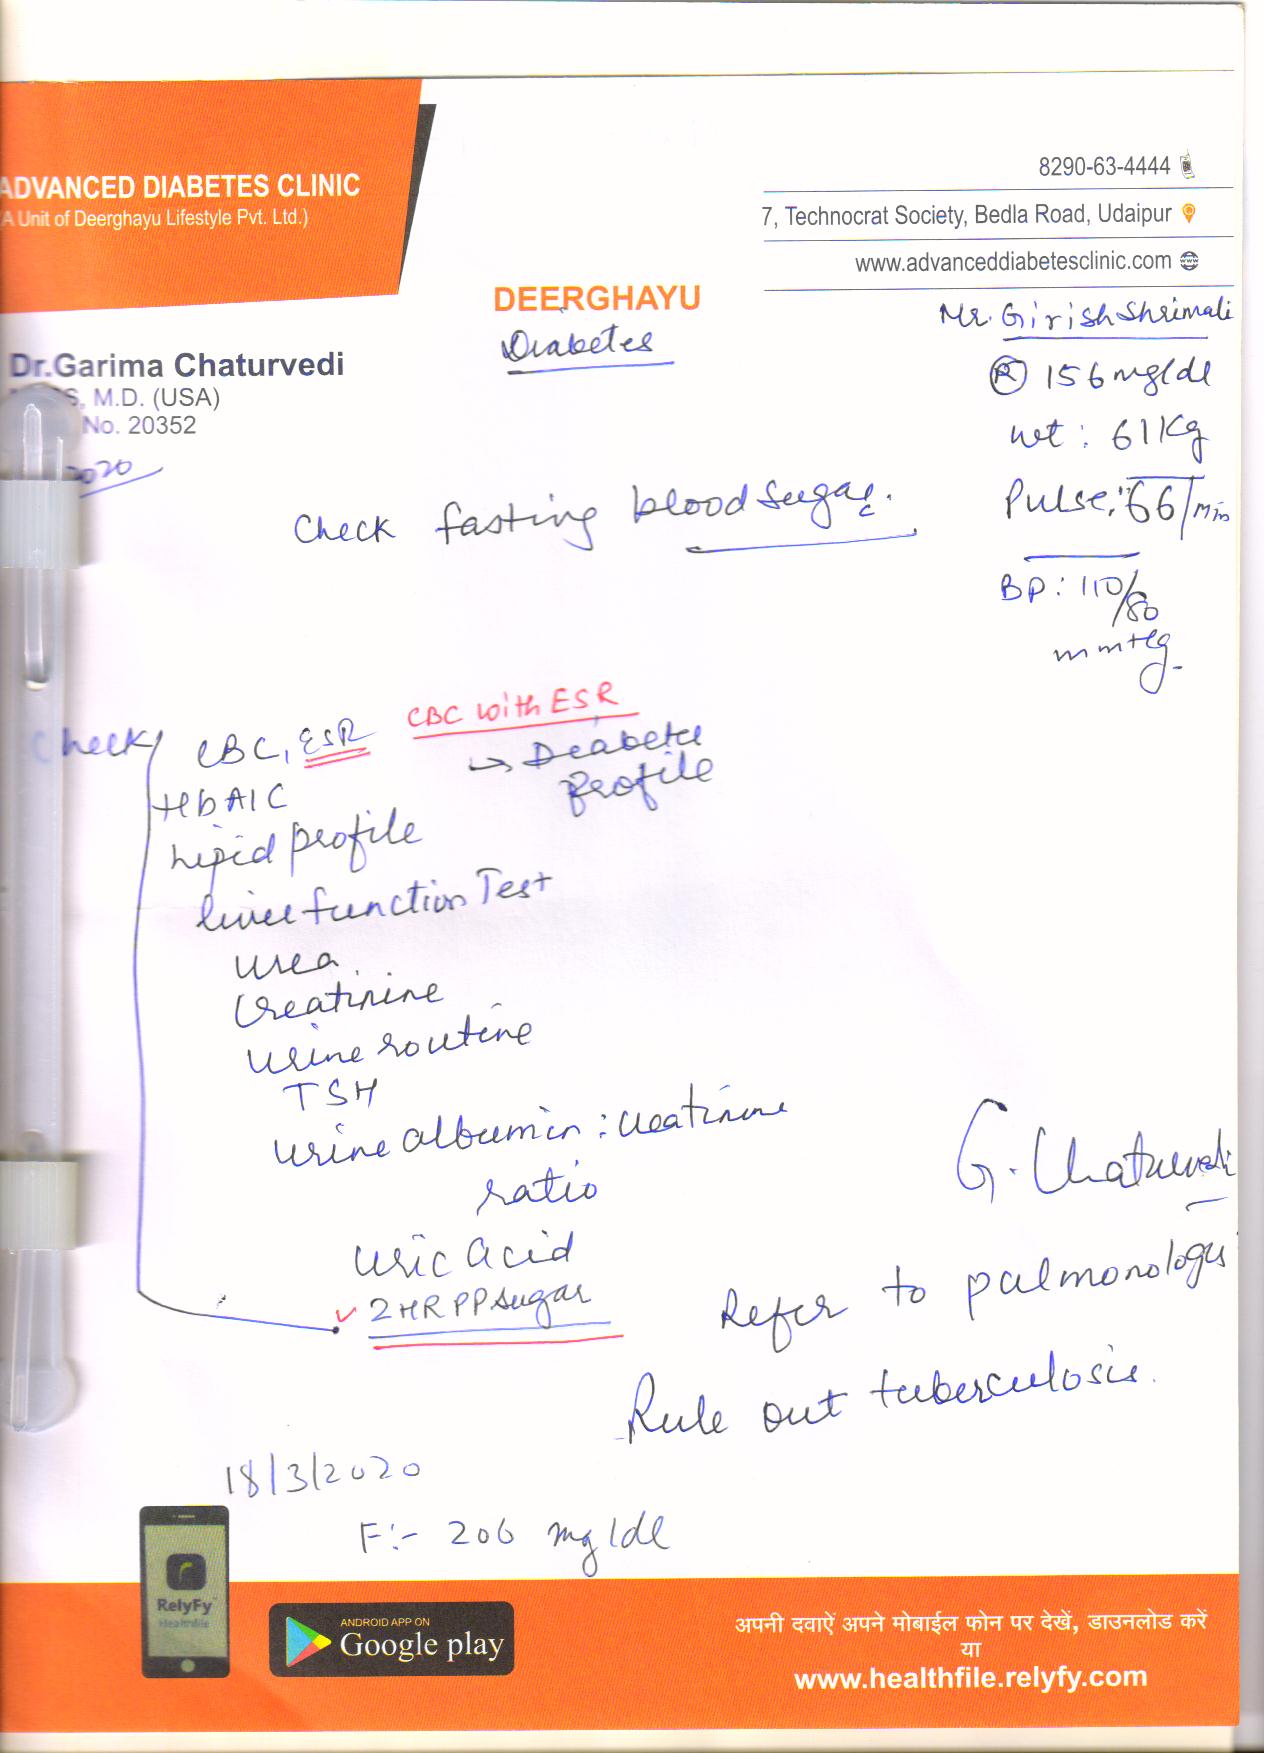 ADVANCED DIABETES CLINIC
(A Unit of Deerghayu Lifestyle Pvt. Ltd.)
8290-63-4444
7, Technocrat Society, Bedla Road, Udaipur
www.advanceddiabetesclinic.com
DEERGHAYU
Diabetes
Mr. Girish Shrimali
Dr.Garima Chaturvedi
M.D. (USA)
No. 20352
2020
(R) 156 mg/dl
wt: 61 Kg
Pulse: 66/Min
BP: 110/80
mmHg
Check fasting blood sugar.
Check CBC, ESR CBC with ESR
→ Diabetes
Profile
HbA1C
Lipid profile
liver function Test
Urea
Creatinine
Urine routine
TSH
Urine albumin: creatinine
ratio
Uric acid
2HR PP sugar
G. Chaturvedi
Refer to pulmonologis
Rule out tuberculosis.
18/3/2020
F:- 206 mg/dl
RelyFy
Healthfile
ANDROID APP ON
Google play
अपनी दवाऐं अपने मोबाईल फोन पर देखें, डाउनलोड करें
या
www.healthfile.relyfy.com